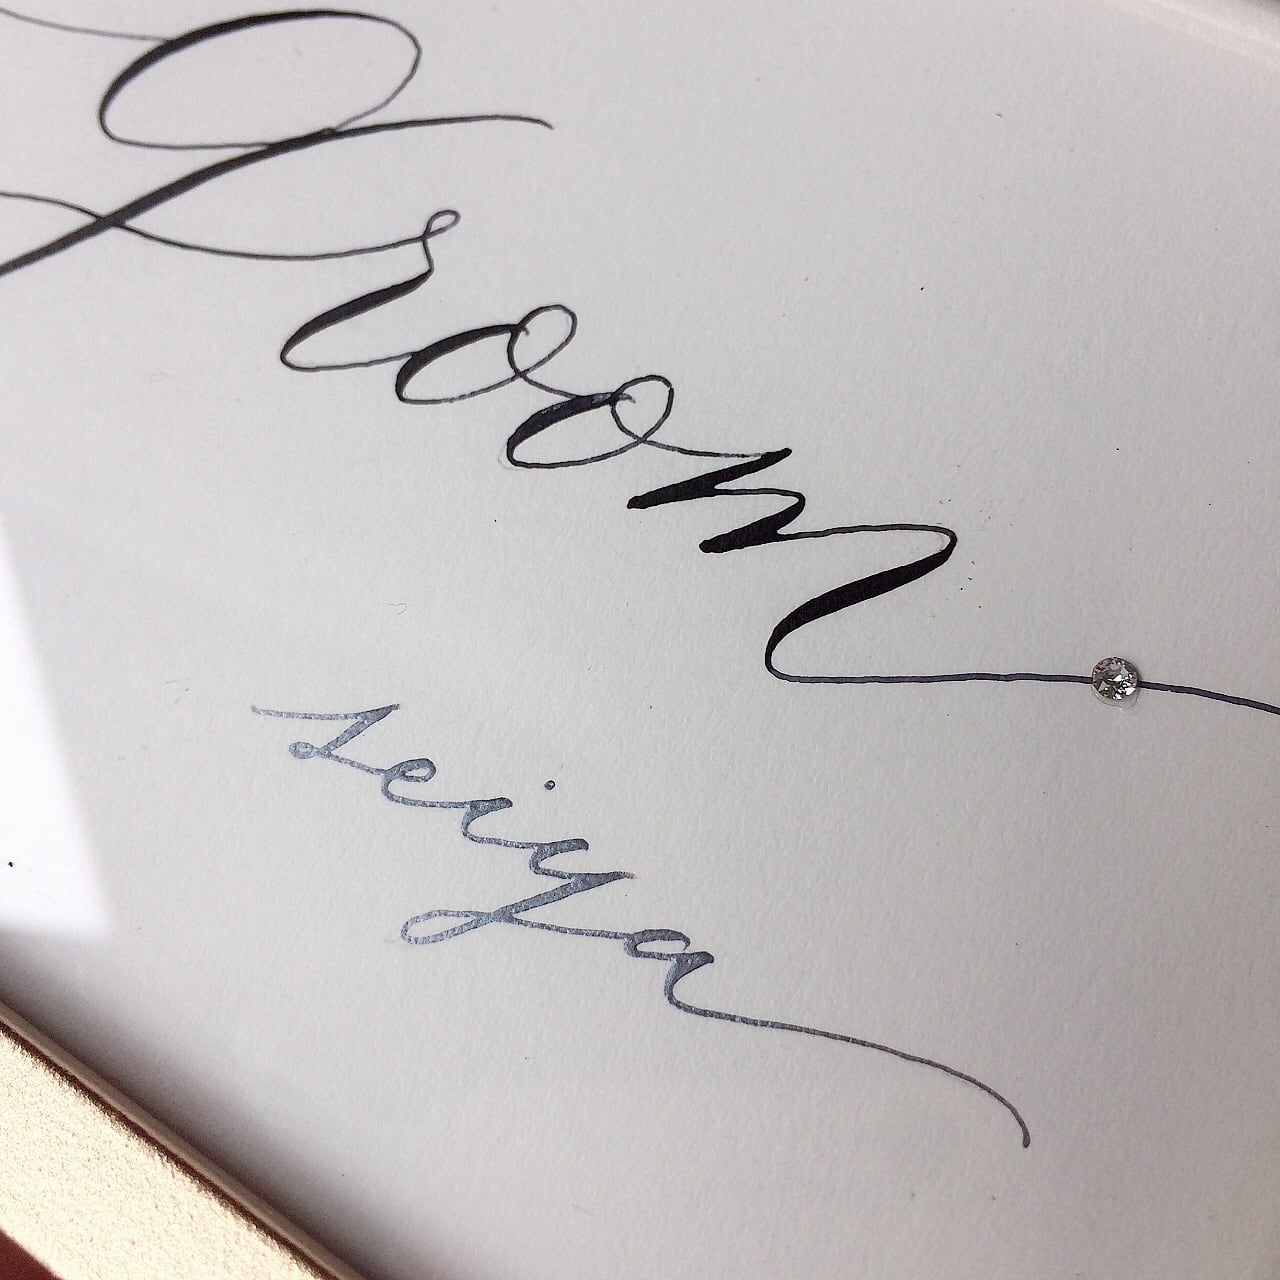 Groom
seiya